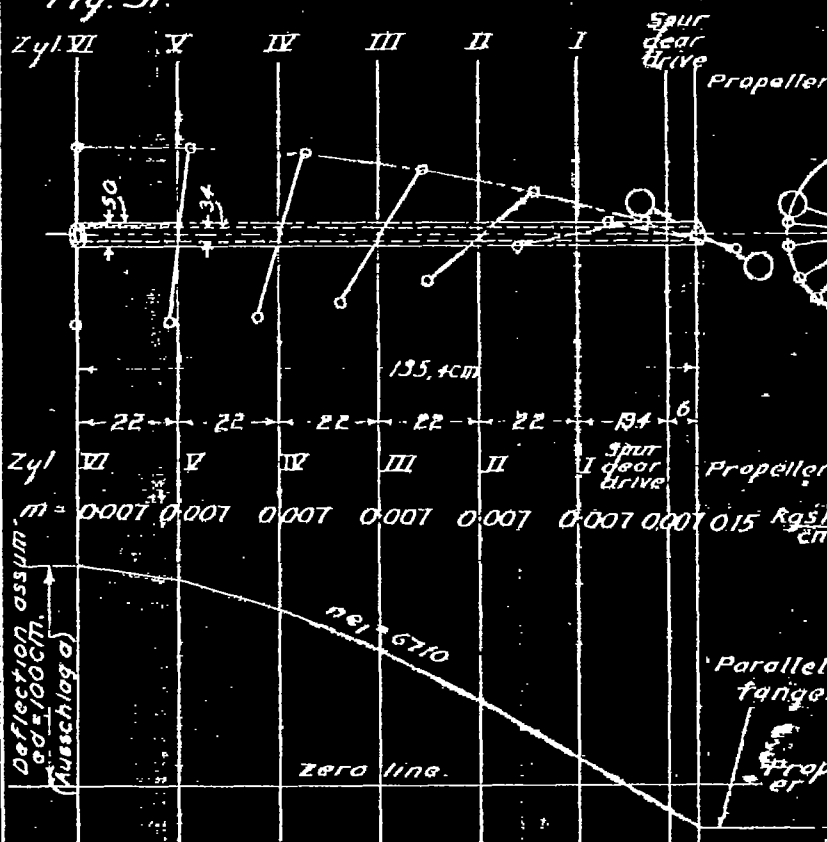 Fig. 31.
Zyl. VI V IV III II I Spur
dear
drive
Propeller
+50 +34
135,4cm
22 22 22 22 22 194 6
Zyl VI V IV III II I Spur
dear
drive
Propeller
m = 0.007 0.007 0.007 0.007 0.007 0.007 0.007 0.15
Deflection assum-
ed = 100cm.
(Ausschlag a)
ne₁ = 6710
Parallel
zero line.